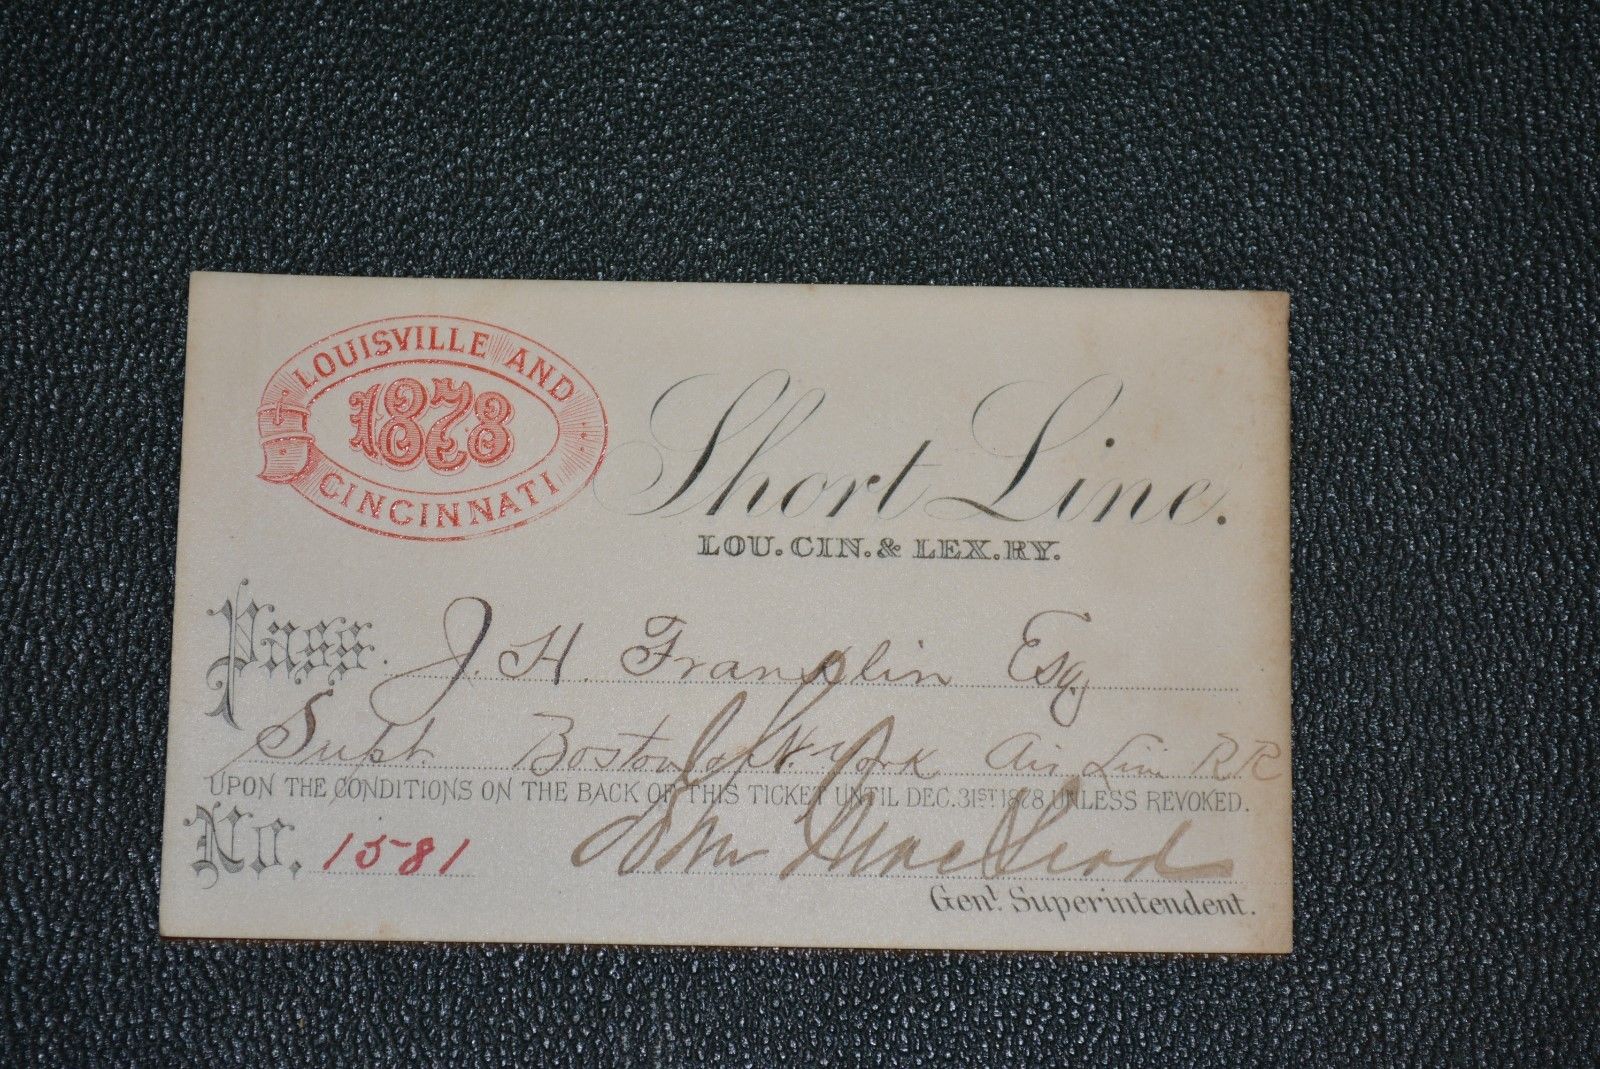 LOUISVILLE AND
1878
CINCINNATI
Short Line.
LOU. CIN. & LEX. RY.
Pass. J. H. Franklin Esq
Supt. Boston & N. York Air Line RR
UPON THE CONDITIONS ON THE BACK OF THIS TICKET UNTIL DEC. 31ST 1878 UNLESS REVOKED.
No. 1581 John MacLeod
Genl. Superintendent.